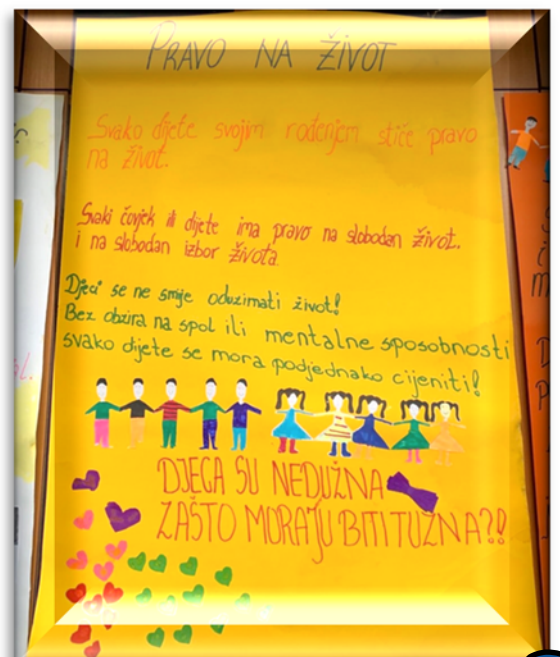 PRAVO NA ŽIVOT
Svako dijete svojim rođenjem stiče pravo
na život.
Svaki čovjek ili dijete ima pravo na slobodan život.
i na slobodan izbor života.
Djeci se ne smije oduzimati život!
Bez obzira na spol ili mentalne sposobnosti
svako dijete se mora podjednako cijeniti!
DJECA SU NEDUŽNA
ZAŠTO MORAJU BITI TUŽNA?!